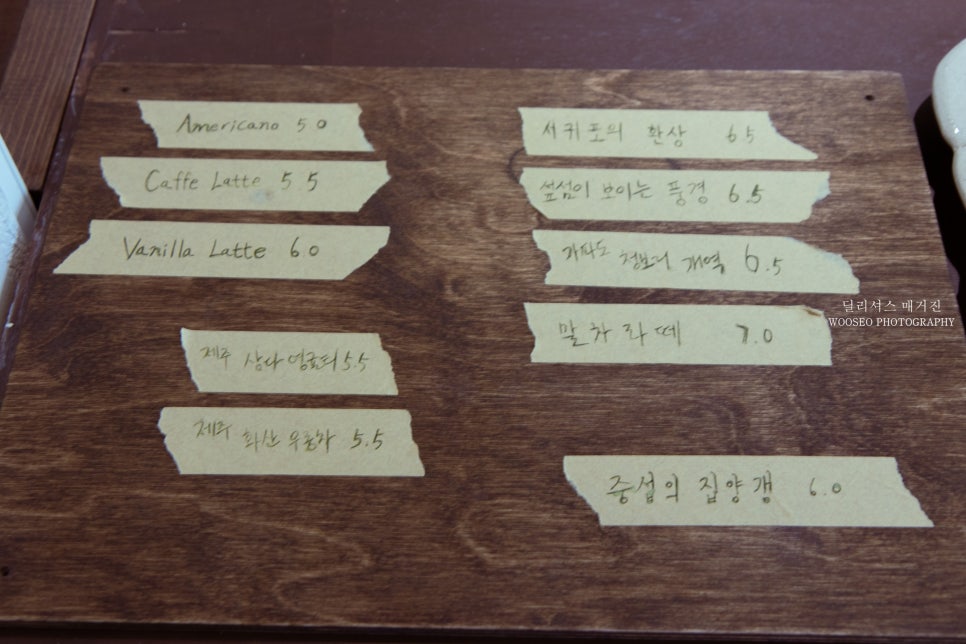 Americano 5 0
Caffe Latte 5 5
Vanilla Latte 6 0
제주 삼다영귤티 5.5
제주 화산우롱차 5.5
서귀포의 환상 6 5
섶섬이 보이는 풍경 6.5
가파도 청보리 개역 6.5
말차라떼 7.0
중섭의 집양갱 6.0
딜리셔스 매거진
WOOSEO PHOTOGRAPHY